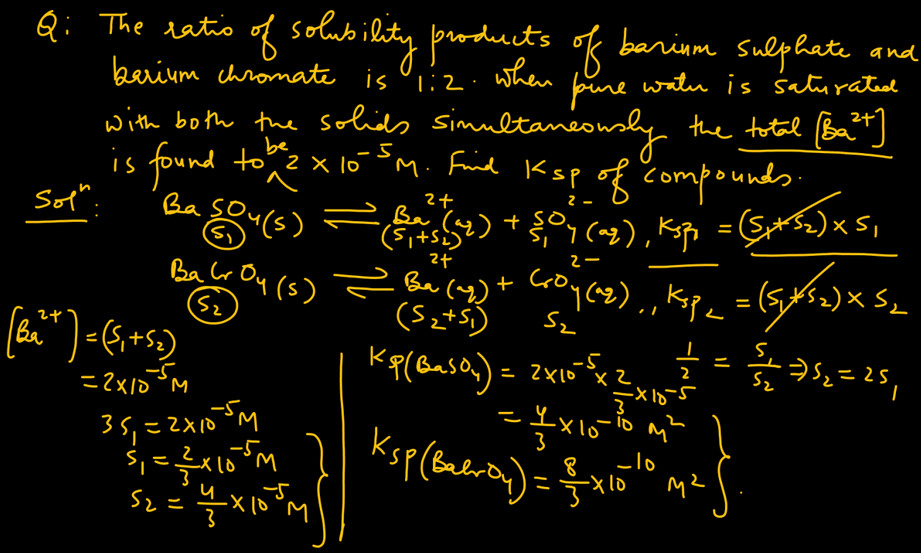 Q: The ratio of solubility products of barium sulphate and
barium chromate is 1:2. When pure water is saturated
with both the solids simultaneously the total [Ba²⁺]
is found to be 2 × 10⁻⁵ M. Find Ksp of compounds.
Solⁿ: BaSO₄(s) ⇌ Ba²⁺(aq) + SO₄²⁻(aq), Ksp₁ = (S₁+S₂) × S₁
S₁ (S₁+S₂) S₁
BaCrO₄(s) ⇌ Ba²⁺(aq) + CrO₄²⁻(aq), Ksp₂ = (S₁+S₂) × S₂
S₂ (S₂+S₁) S₂
[Ba²⁺] = (S₁+S₂)
= 2×10⁻⁵ M
3S₁ = 2×10⁻⁵ M
S₁ = 2/3 × 10⁻⁵ M
S₂ = 4/3 × 10⁻⁵ M
Ksp(BaSO₄) = 2×10⁻⁵ × 2/3 × 10⁻⁵
= 4/3 × 10⁻¹⁰ M²
Ksp(BaCrO₄) = 8/3 × 10⁻¹⁰ M²
1/2 = S₁/S₂ ⇒ S₂ = 2S₁